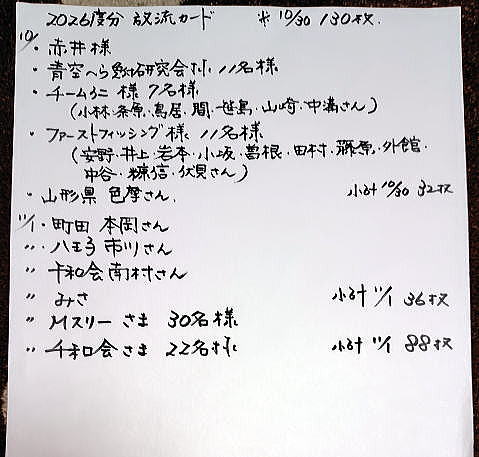 2026度分 放流カード ※ 10/30 130枚
10/ ・赤井様
・青空へら 研究会様 11名様
・チームうに 様 7名様
(小林・条原・鳥居・間・笹島・山崎・中溝さん)
・ファーストフィッシング様 11名様
(安野・井上・岩本・小坂・曽根・田村・藤原・外館・
中谷・糠信・伏見さん)
・山形県 色摩さん 小計 10/30 32枚
11/1・町田 本岡さん
〃・八王子 市川さん
〃 千和会 南村さん
〃 みさ 小計 11/1 36枚
〃 Mスリー さま 30名様
〃 千和会 さま 22名様 小計 11/1 88枚